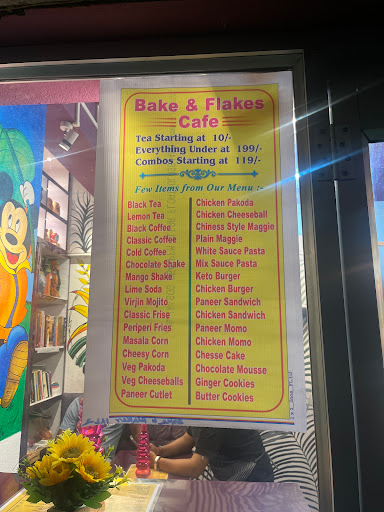 Bake & Flakes
Cafe
Tea Starting at 10/-
Everything Under at 199/-
Combos Starting at 119/-
Few Items from Our Menu :-
Black Tea
Lemon Tea
Black Coffee
Classic Coffee
Cold Coffee
Chocolate Shake
Mango Shake
Lime Soda
Virjin Mojito
Classic Frise
Periperi Fries
Masala Corn
Cheesy Corn
Veg Pakoda
Veg Cheeseballs
Paneer Cutlet
Chicken Pakoda
Chicken Cheeseball
Chiness Style Maggie
Plain Maggie
White Sauce Pasta
Mix Sauce Pasta
Keto Burger
Chicken Burger
Paneer Sandwich
Chicken Sandwich
Paneer Momo
Chicken Momo
Chesse Cake
Chocolate Mousse
Ginger Cookies
Butter Cookies